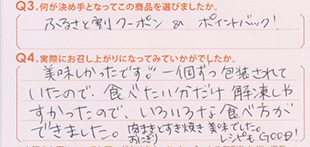 Q3.何が決め手となってこの商品を選びましたか。
ふるさと割クーポン & ポイントバック!
Q4.実際にお召し上がりになってみていかがでしたか。
美味しかったです。一個ずつ包装されて
いたので、食べたい分だけ解凍しや
すかったので、いろいろな食べ方が
できました。肉まきとすき焼き美味でした。
おにぎり レシピもGOOD!